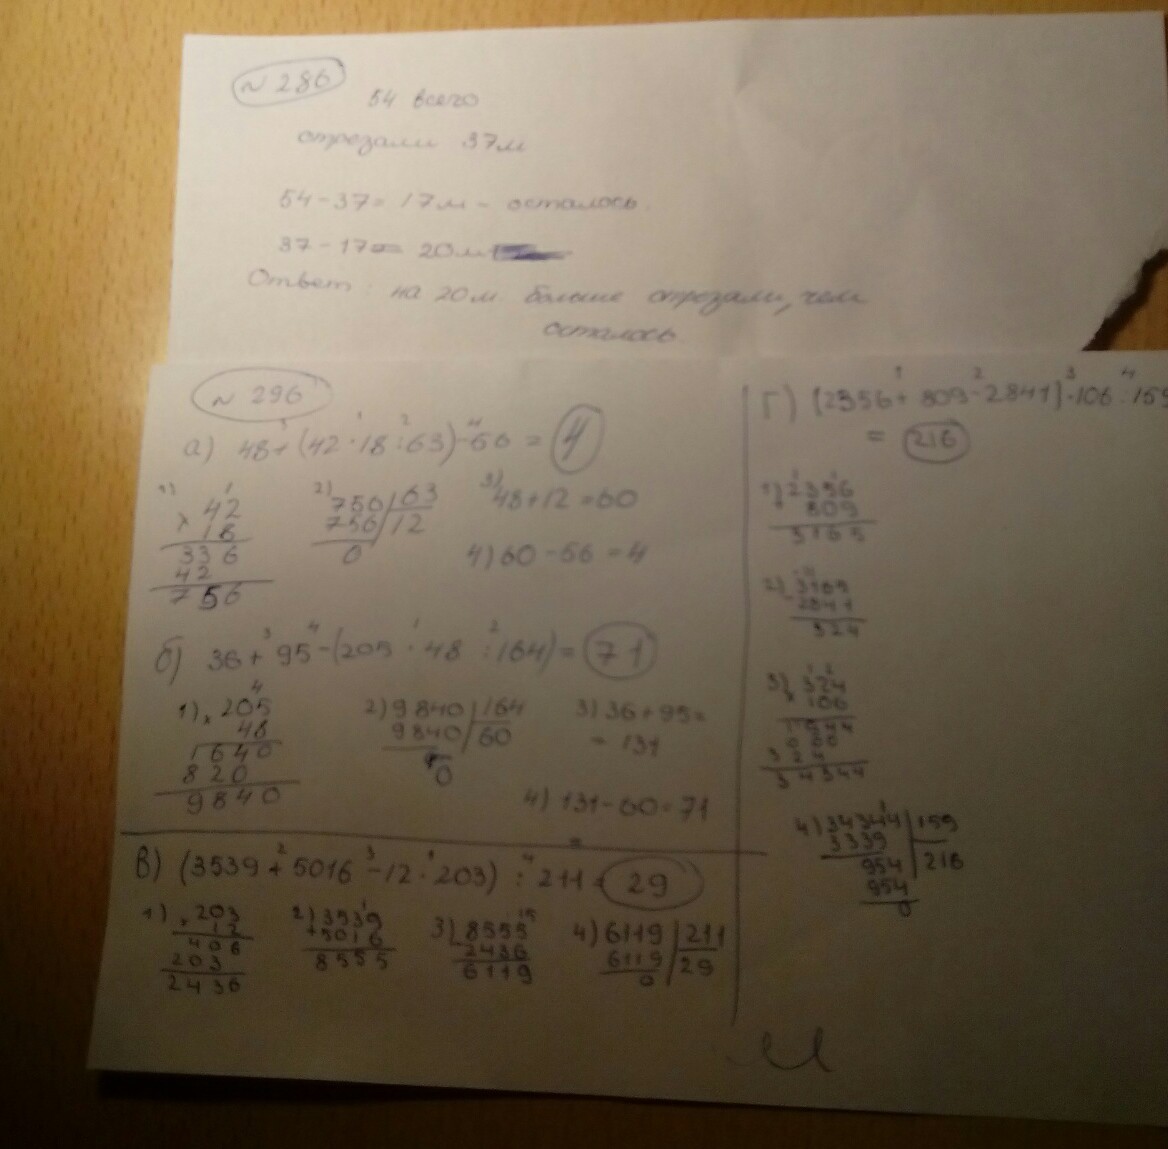 № 286
54 всего
отрезали 37м
54-37= 17м - осталось.
37-17= 20м
Ответ: на 20м больше отрезали, чем
осталось
№ 296
а) 48+(42·18:63)-56 = 4
1) 42
× 18
336
42
756
2) 756 63
756 12
0
3) 48+12=60
4) 60-56=4
б) 36+95-(205·48:164)= 71
1) × 205
48
1640
820
9840
2) 9840 164
9840 60
0
3) 36+95=
= 131
4) 131-60=71
В) (3539+5016-12·203):211= 29
1) × 203
12
406
203
2436
2) 3539
+ 5016
8555
3) 8555
- 2436
6119
4) 6119 211
6119 29
0
Г) (2356+809-2841)·106:159
= 216
1) 2356
+ 809
3165
2) 3165
- 2841
324
3) 324
× 106
1944
000
324
34344
4) 34344 159
3339 216
954
954
0